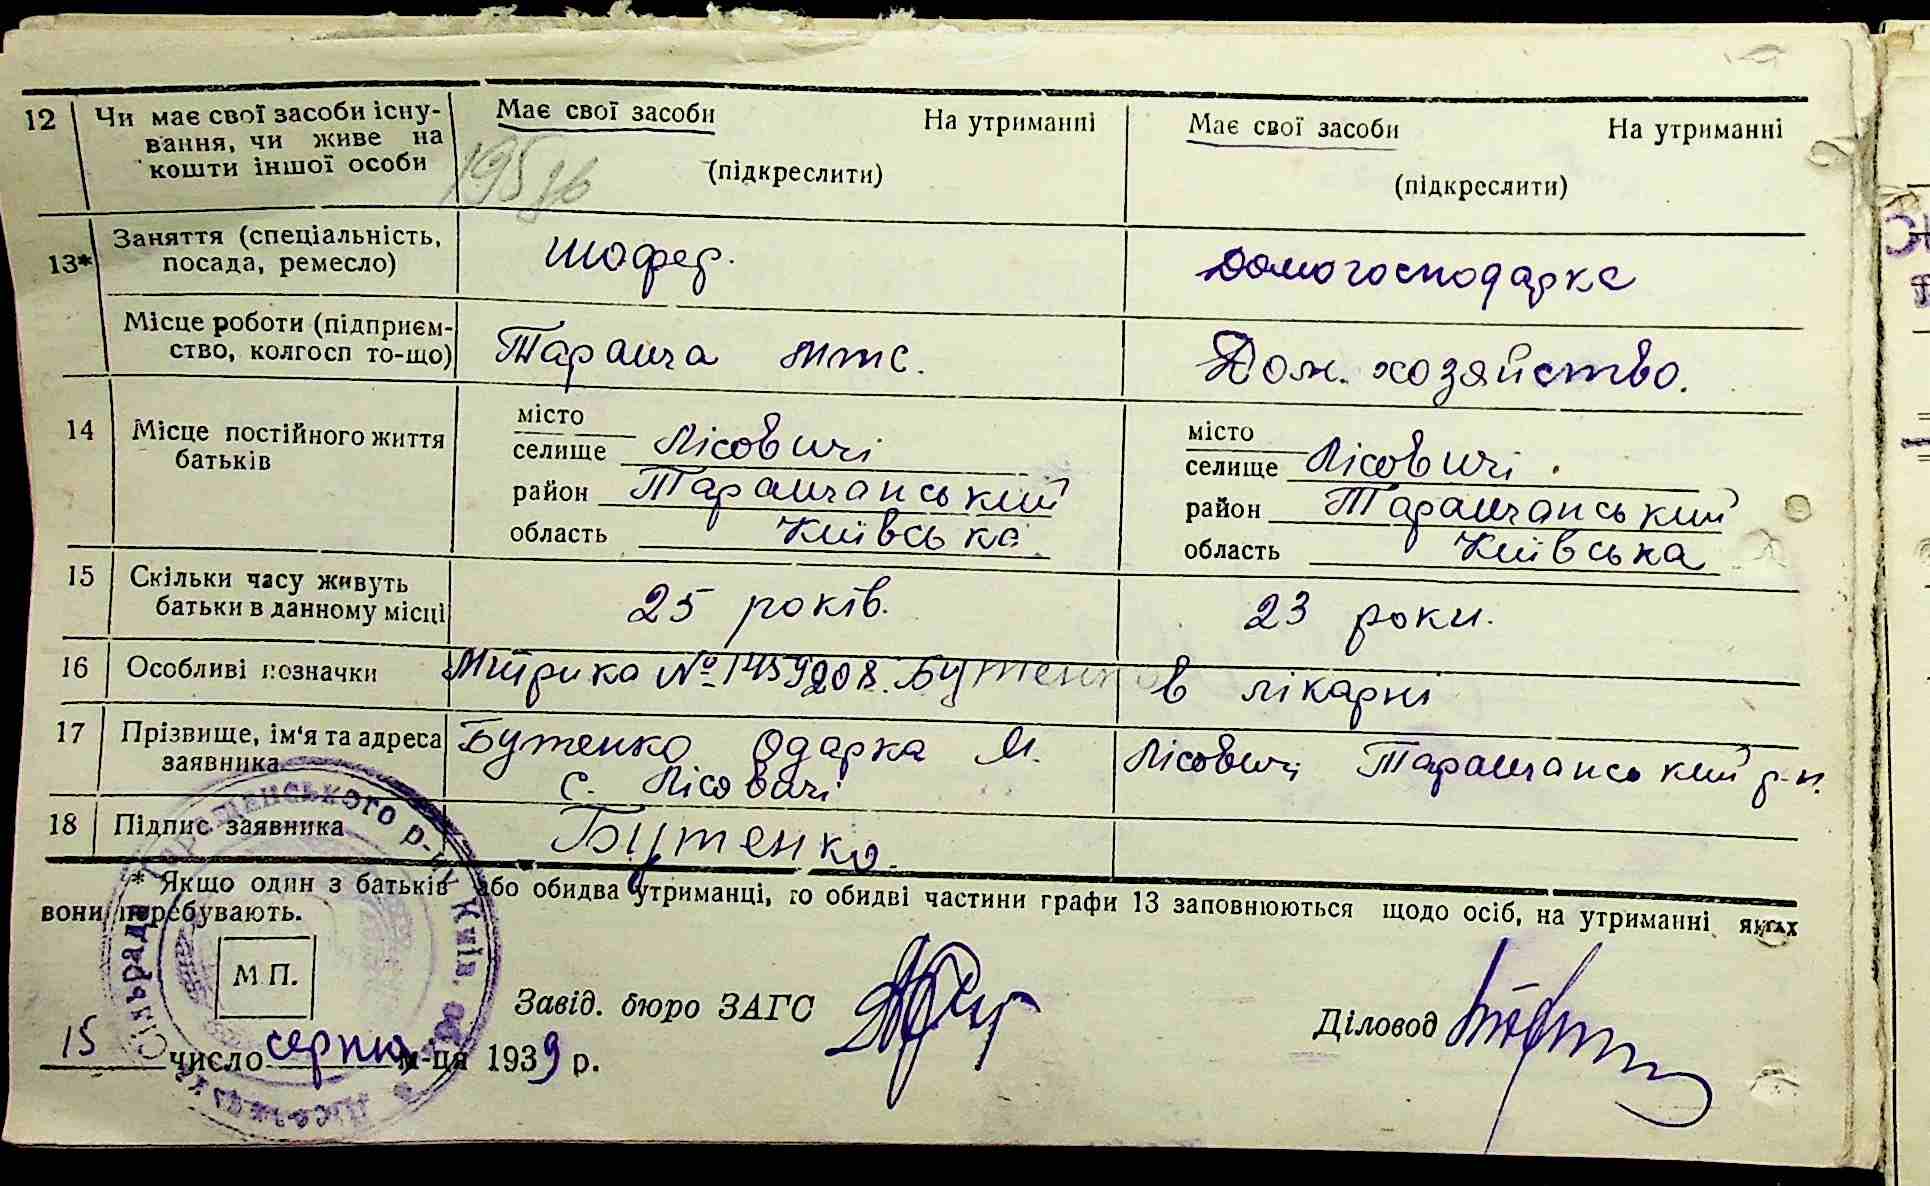 12 Чи має свої засоби існу- Має свої засоби На утриманні Має свої засоби На утриманні
вання, чи живе на
кошти іншої особи (підкреслити) (підкреслити)
13* Заняття (спеціальність, шофер. домогосподарка
посада, ремесло)
Місце роботи (підприєм- Тараща мтс. Дом. хозяйство.
ство, колгосп то-що)
14 Місце постійного життя місто місто
батьків селище Лісовичі селище Лісовичі.
район Таращанський район Таращанський
область Київська область Київська
15 Скільки часу живуть 25 років. 23 роки.
батьки в данному місці
16 Особливі позначки Митрика № 1459208. Бутенко в лікарні
17 Прізвище, ім'я та адреса Бутенко Одарка М. Лісовичі Таращанський р-н.
заявника с. Лісовичі
18 Підпис заявника Бутенко.
* Якщо один з батьків або обидва утриманці, то обидві частини графи 13 заповнюються щодо осіб, на утриманні яких
вони перебувають.
М П.
Завід. бюро ЗАГС Діловод
15 число серпня м-ця 1939 р.